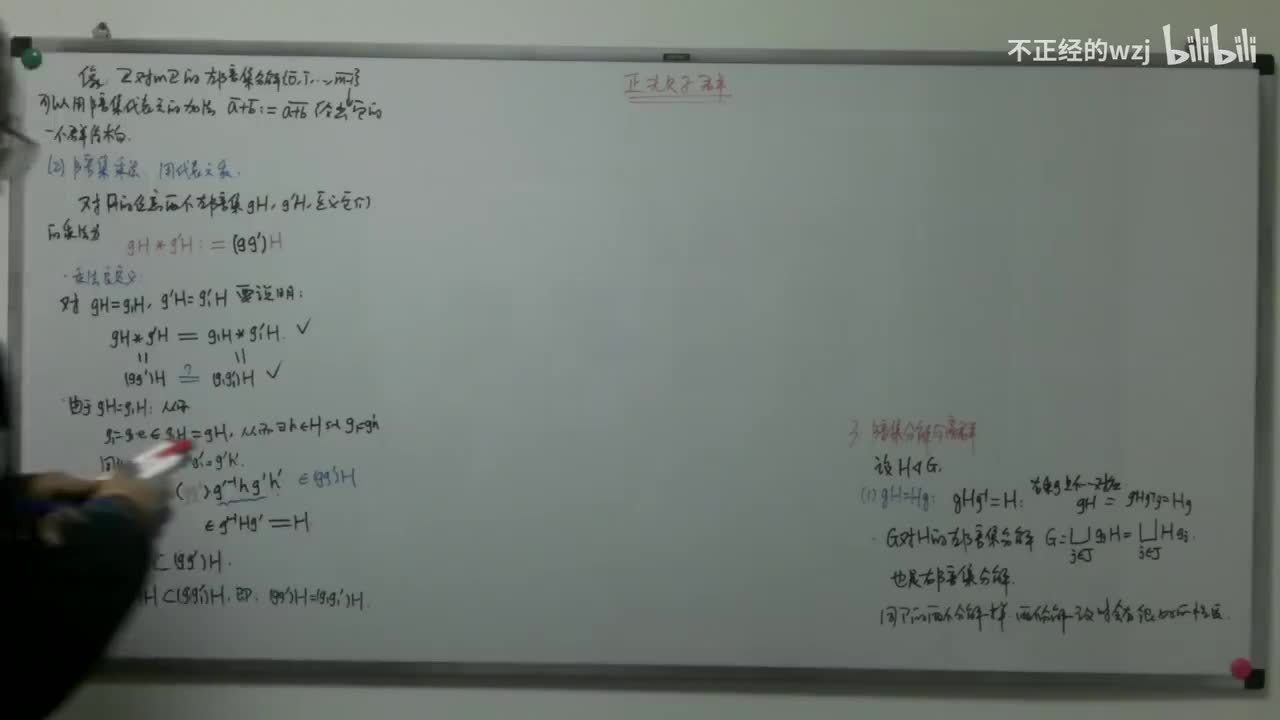 不正经的wzj bilibili
正规子群
像 Z对mZ的左陪集分解{0̄,1̄,…,m-1}
可以用陪集代表元的加法 ā+b̄:=a+b 给出它的
一个群结构.
(2) 陪集乘法 同代表元乘.
对H的任意两个左陪集gH, g'H, 定义它们
的乘法为 gH*g'H:=(gg')H
·乘法良定义
对 gH=g₁H, g'H=g₁'H 要说明:
gH*g'H = g₁H*g₁'H. ✓
(gg')H ?= (g₁g₁')H ✓
由于gH=g₁H; 从而
g₁=g₁e∈g₁H=gH, 从而∃h∈H s.t. g₁=gh
g₁'=g'h'.
g'⁻¹hg'h' ∈(gg')H
∈g'⁻¹Hg'=H
⊂(gg')H.
H⊂(g₁g₁')H, 即: (gg')H=(g₁g₁')H.
3. 陪集分解与商群
设H◁G.
(1) gH=Hg: gHg⁻¹=H: gH = gHg⁻¹g=Hg
·G对H的左陪集分解 G=⊔gⱼH=⊔Hgⱼ.
j∈J j∈J
也是右陪集分解.